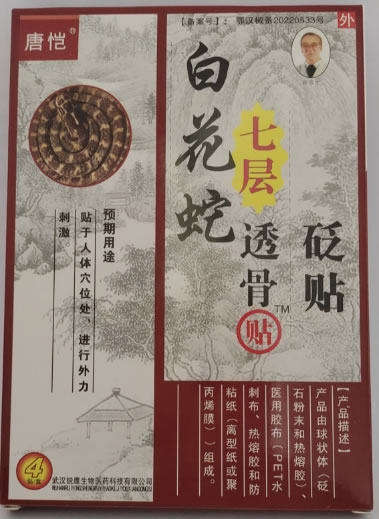 唐恺®
【备案号】：鄂汉械备20220533号
外
白花蛇
七层
透骨贴™
砭贴
预期用途
贴于人体穴位处、进行外力
刺激
【产品描述】
产品由球状体（砭
石粉末和热熔胶）、
医用胶布（PET水
刺布、热熔胶和防
粘纸（离型纸或聚
丙烯膜））组成。
4
贴/盒
武汉锐鹰生物医药科技有限公司